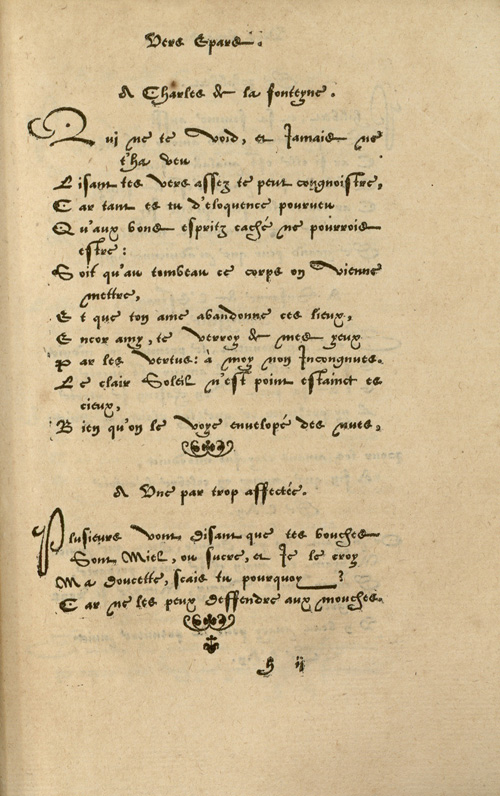 Vers Epars.
A Charles de la fonteyne.
Qui ne te void, et Jamais ne
t'ha veu
Lisant tes vers assez te peut congnoistre,
Car tant es tu d'eloquence pourveu
Qu'aux bons espritz caché ne pourrois
estre:
Soit qu'au tombeau ce corps on vienne
mettre,
Et que ton ame abandonne ces lieux,
Encor amy, te verroy de mes yeux
Par les vertus: à moy non Incongnues.
Le clair Soleil n'est point estainct es
cieux,
Bien qu'on le voye envelopé des nues.
A Vne par trop affectée.
Plusieurs vont disant que tes bouches
Sont Miel, ou sucre, et Je le croy
Ma doucette, scais tu pourquoy ?
Car ne les peux deffendre aux mouches.
h ij